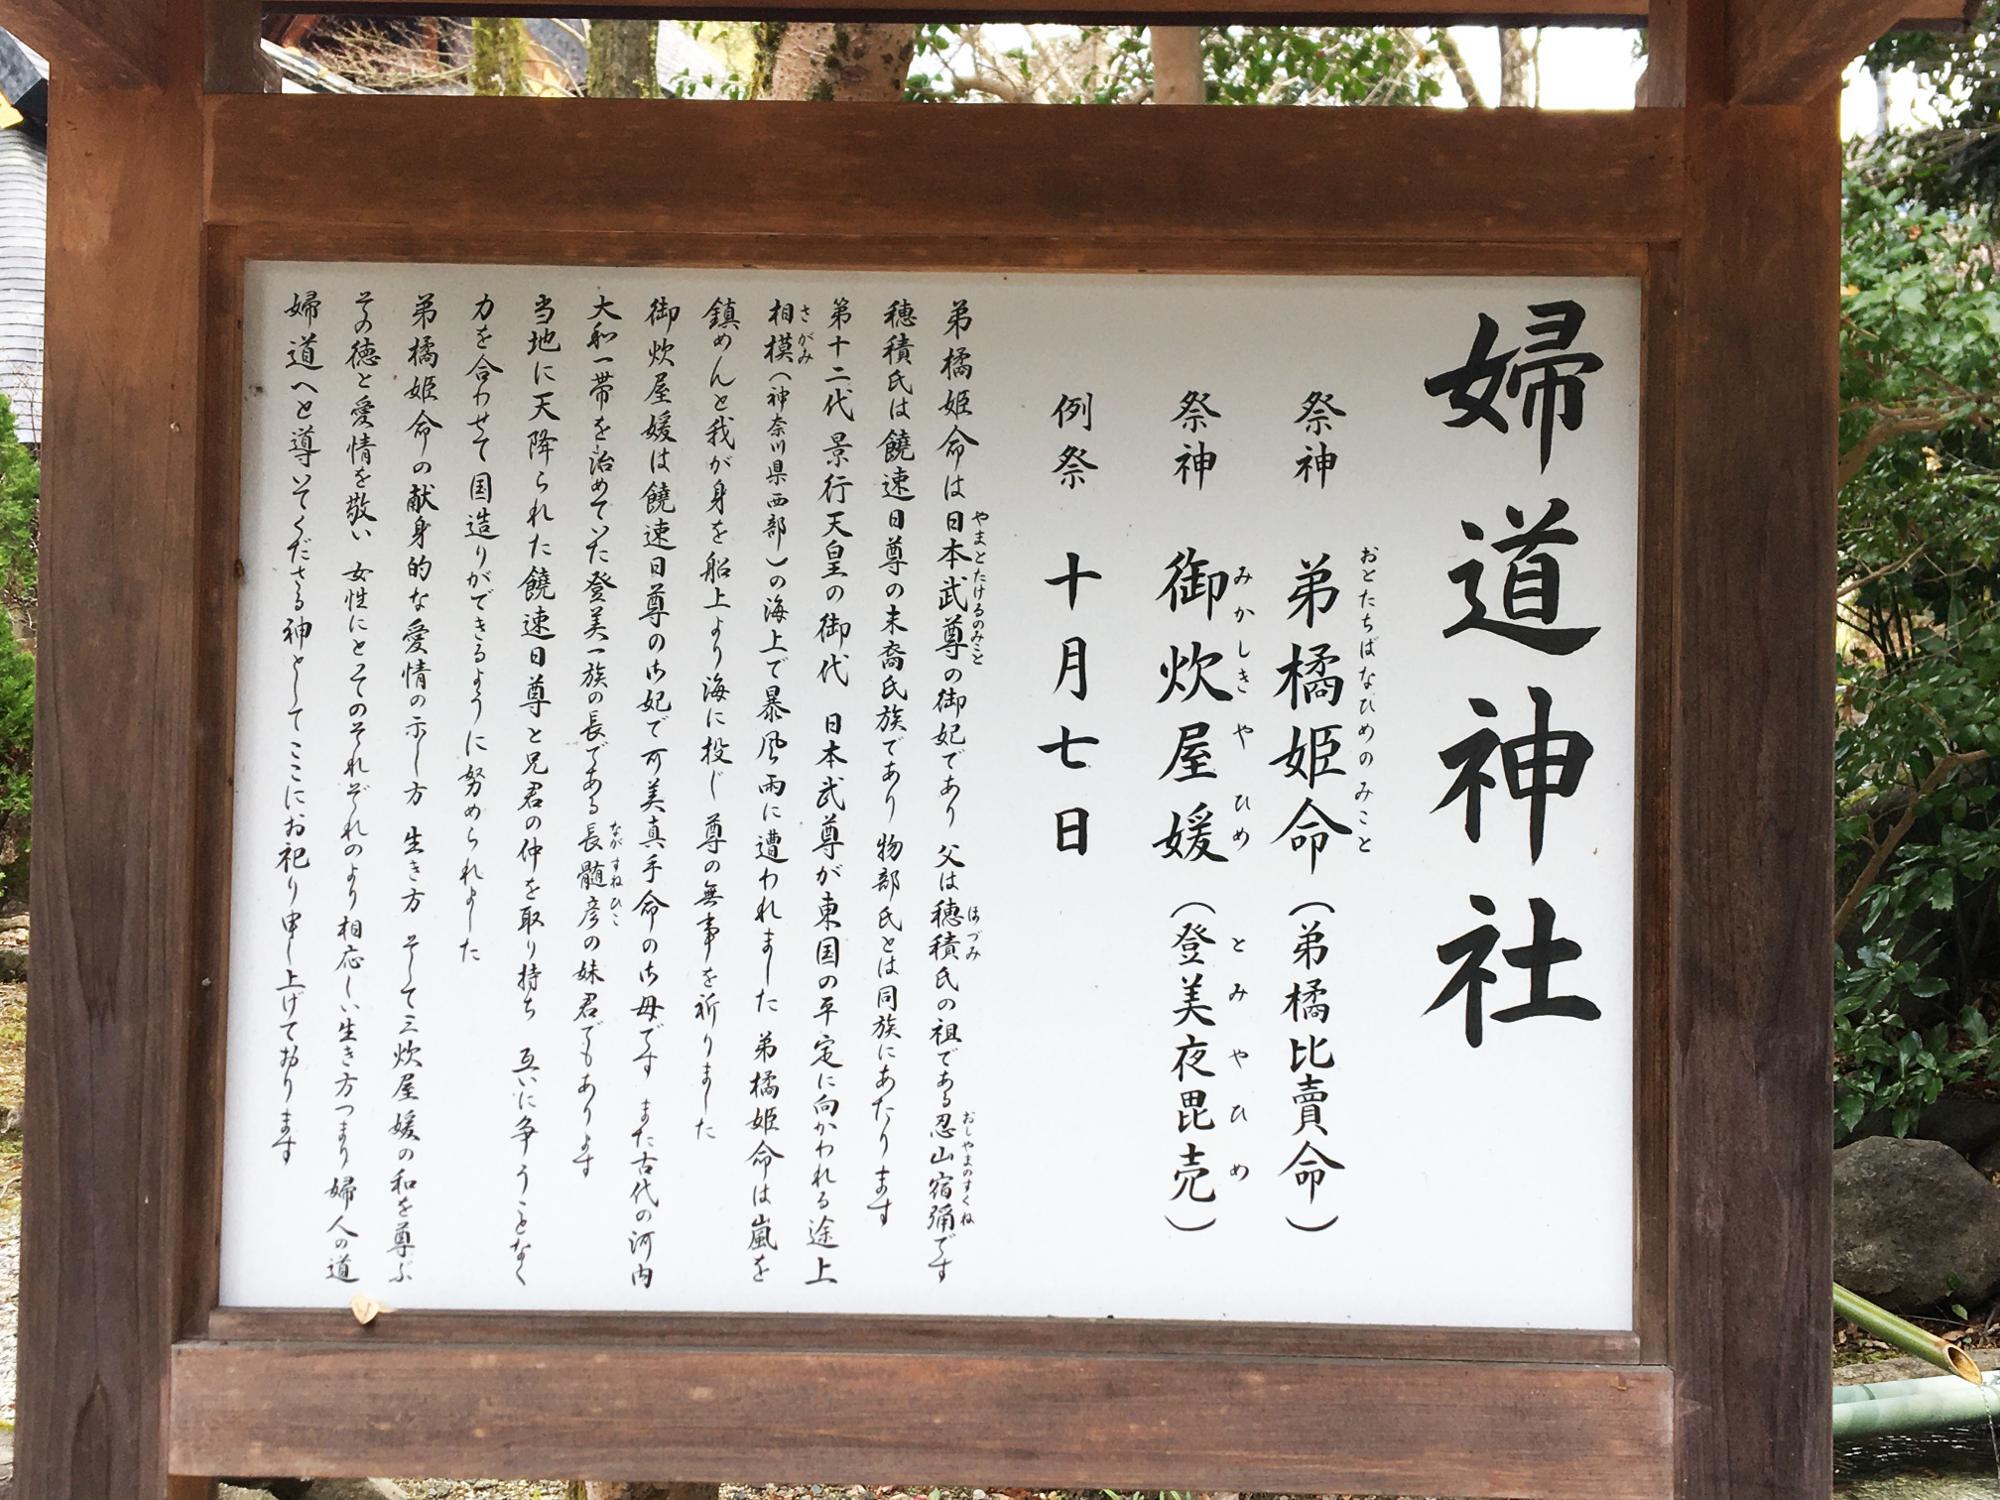 婦道神社
祭神 弟橘姫命（弟橘比賣命）
おとたちばなひめのみこと
祭神 御炊屋媛（登美夜毘売）
みかしきやひめ とみやひめ
例祭 十月七日
弟橘姫命は日本武尊の御妃であり 父は穂積氏の祖である忍山宿彌です
やまとたけるのみこと ほづみ おしやまのすくね
穂積氏は饒速日尊の末裔氏族であり 物部氏とは同族にあたります
第十二代 景行天皇の御代 日本武尊が東国の平定に向かわれる途上
相模（神奈川県西部）の海上で暴風雨に遭われました 弟橘姫命は嵐を
さがみ
鎮めんと我が身を船上より海に投じ 尊の無事を祈りました
御炊屋媛は饒速日尊の御妃で可美真手命の御母です また古代の河内
大和一帯を治めていた登美一族の長である長髄彦の妹君でもあります
ながすねひこ
当地に天降られた饒速日尊と兄君の仲を取り持ち 互いに争うことなく
力を合わせて国造りができるように努められました
弟橘姫命の献身的な愛情の示し方 生き方 そして三炊屋媛の和を尊ぶ
その徳と愛情を敬い 女性にとってのそれぞれのより相応しい生き方つまり 婦人の道
婦道へと導いてくださる神としてここにお祀り申し上げております